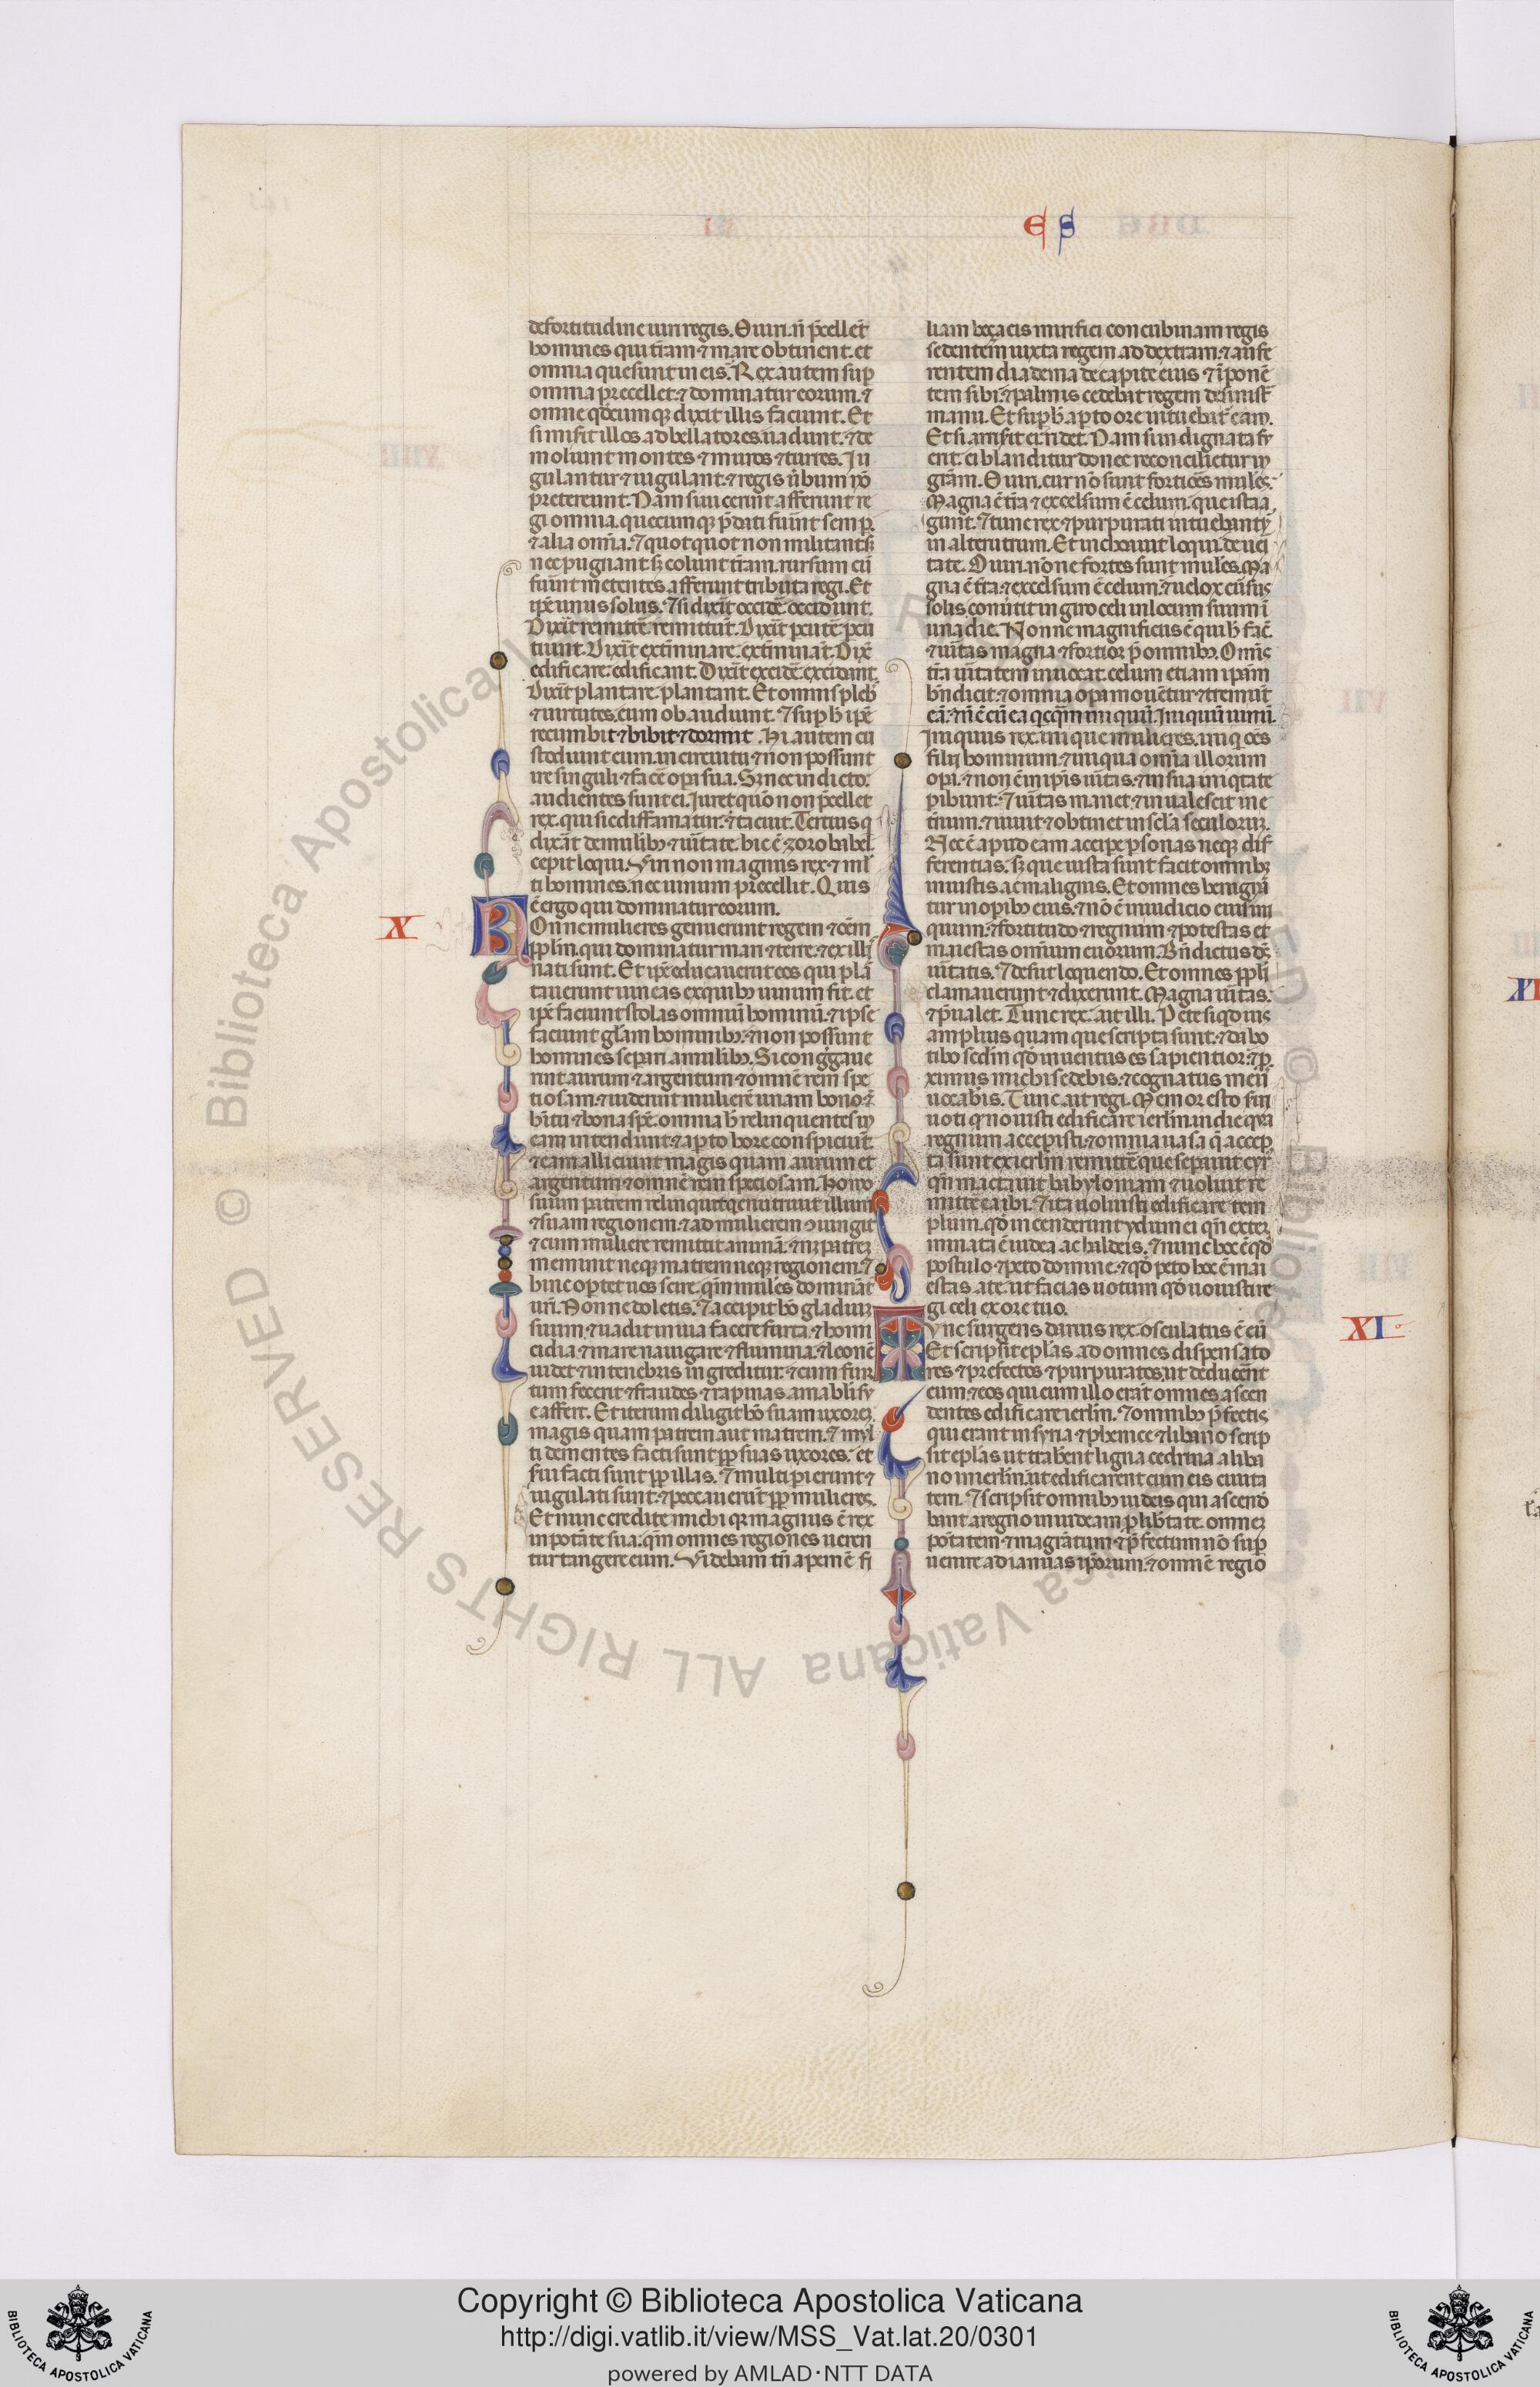 E S
de fortitudine uini regis. O uiri. nͫ p̄cellēt
homines qui tr̄am ⁊ mare obtinent. et
omnia que sunt in eis. Rex autem sup̱
omnia precellet. ⁊ dominatur eorum. ⁊
omne qđcumqꝫ dixit illis faciunt. Et
si misit illos ad bellatores. uadunt. ⁊ de
moliunt montes ⁊ muros ⁊ turres. Iu
gulantur ⁊ iugulant. ⁊ regis ūbum nō
pretereunt. Nam si uicerint afferunt re
gi omnia. quecumqꝫ p̄dati fuīnt semp̱
⁊ alia om̄ia. ⁊ quotquot non militant
nec pugnant sꝫ colunt tr̄am. rursum cū
fuīnt metentes afferunt tributa regi. Et
ip̄e unus solus. ⁊ si dixīt occidē occidunt.
Dixīt remittē. remittūt. Dixīt p̱cutē p̱cu
tiunt. Dixīt extīminare. extīminant. Dixīt
edificare. edificant. Dixīt excidē. excidunt.
Dixīt plantare. plantant. Et omnis plebs
⁊ uirtutes. eum obaudiunt. ⁊ sup̱ h̄ ip̄e
recumbit ⁊ bibit ⁊ dormit. Hi autem cu
stodiunt eum. in circuitu ⁊ non possunt
ire singuli ⁊ facē op̱a sua. Sꝫ nec in dicto
audientes sunt ei. Iuret quō non p̄cellet
rex. qui sic diffamatur. ⁊ tacuit. Tertius q
dixāt de mulibꝫ ⁊ uītate. hic ē zorobabel.
cepit loqui. Viri non magnus rex ⁊ ml̄
ti homines. nec uinum precellit. Quis
ē ergo qui dominatur eorum.
X
NOnne mulieres genuerunt regem ⁊ oēm
pp̄lm. qui dominatur mari ⁊ terre. ⁊ ex illis
nati sunt. Et ip̄e educauerunt eos qui plā
tauerunt uineas ex quibꝫ uinum fit. et
ip̄e faciunt stolas omniū hominū. ⁊ ipse
faciunt glām hominibꝫ. ⁊ non possunt
homines separi a mulibꝫ. Si congɡaue
rint aurum ⁊ argentum ⁊ omnē rem spe
tiosam. ⁊ uiderint mulierē unam bono
hītu ⁊ bona spē. omnia h̄ relinquentes in
eam intendunt ⁊ ap̱to hore conspiciunt
⁊ eam alliciunt magis quam aurum et
argentum ⁊ omnē rem speciosam. Homo
suum patrem relinquit qenutriuit illum
⁊ suam regionem. ⁊ ad mulierem ꝯiungit
⁊ cum muliere remittit animā. ⁊ nꝫ patrē
meminit neqꝫ matrem neqꝫ regionem. ⁊
hinc op̱tet uos scire. qm̄ mules dominant
uri. Nonne doletis. ⁊ accipit hō gladium
suum. ⁊ uadit in uia facere furta. ⁊ homi
cidia ⁊ mare nauigare ⁊ flumina. ⁊ leonē
uidet ⁊ in tenebris ingreditur. ⁊ cum fur
tum fecerit ⁊ fraudes ⁊ rapinas amabili su
e affert. Et iterum diligit hō suam uxorem
magis quam patrem aut matrem. ⁊ mul
ti dementes facti sunt pp̱ suas uxores. et
sui facti sunt pp̱ illas. ⁊ multi p̱ierunt ⁊
iugulati sunt. ⁊ peccauerūt pp̱ mulieres.
Et nunc credite michi qꝫ magnus ē rex
in potāte sua. qm̄ omnes regiones ueren
tur tangere eum. Videbam tn̄ apemē fi
liam beçacis mirifici concubinam regis
sedentem iuxta regem ad dextram. ⁊ aufe
rentem diadema de capite eius ⁊ īponē
tem sibi. ⁊ palmis cedebat regem de sinistr̄
manu. Et sup̱ h̄ ap̱to ore intuebat̄ eam.
Et si arrisit ei. ridet. Nam si indignata fu
erit. ei blanditur donec reconcilietur in
gr̄am. O uiri. cur nō sunt fortiores mulēs.
Magna ē tr̄a ⁊ excelsum ē celum. que ista a
gunt. ⁊ tunc rex ⁊ purpurati intuebantur
in alterutrum. Et inchoauit loqui de ueri
tate. O uiri. nōne fortes sunt mulēs. Ma
gna ē tr̄a. ⁊ excelsum ē celum. ⁊ uelox cursus
solis. conuītit in giro celi in locum suum ī
una die. Nonne magnificus ē qui h̄ facē.
⁊ uītas magna ⁊ fortior p̄ omnibꝫ. Om̄is
tr̄a uītatem inuocat. celum etiam ipsam
bn̄dicit. ⁊ omnia op̱a mouētur ⁊ tremunt
eā. ⁊ nͫ ē cū ea qcqm̄ iniquū. Iniquū uinū.
Iniquus rex. inique mulieres. iniqi oēs
filii hominum. ⁊ iniqua om̄ia illorum
op̱a. ⁊ non ē in ip̄is uītas. ⁊ in sua iniqtate
p̱ibunt. ⁊ uītas manet. ⁊ inualescit in e
tnum. ⁊ uiuit ⁊ obtinet in scl̄a seculorum.
Nec ē apud eam accipe p̱sonas neqꝫ dif
ferentias. sꝫ que iusta sunt facit omnibꝫ
iniustis ac malignis. Et omnes benignā
tur in op̱ibꝫ eius. ⁊ nō ē in iudicio eius ini
quum. ⁊ fortitudo ⁊ regnum ⁊ potestas et
maiestas omnium euorum. Bn̄dictus dꝭ
uītatis. ⁊ desiit loquendo. Et omnes pp̄li
clamauerunt ⁊ dixerunt. Magna uītas.
⁊ p̄ualet. Tunc rex. ait illi. Pete si qđ uis
amplius quam que scripta sunt. ⁊ dabo
tibi scdm̄ qđ inuentus es sapientior. ⁊ p̱
ximus michi sedebis. ⁊ cognatus meus
uocabis. Tunc ait regi. Memor esto sui
uoti qd nouisti edificare ierlm̄. in die qua
regnum accepisti. ⁊ omnia uasa q̄ accep
ta sunt ex ierlm̄ remittē que sepauit cyr̄
qn̄ mactauit babyloniam ⁊ uoluit re
mittē ea ibi. ⁊ ita uoluisti edificare tem
plum. qđ incenderunt ydumei qn̄ exter
minata ē iudea a chaldeis. ⁊ nunc hoc ē qđ
postulo ⁊ peto domine. ⁊ qđ peto hoc ē mai
estas a te. ut facias uotum qđ uouisti re
gi celi ex ore tuo.
XI
TVnc surgens darius rex. osculatus ē eū
Et scripsit ep̄las ad omnes dispensato
res ⁊ prefectos ⁊ purpuratos. ut deducēnt
eum. ⁊ eos qui cum illo erāt omnes ascen
dentes edificare ierlm̄. ⁊ omnibꝫ p̄fectis
qui erant in syria ⁊ phenice ⁊ libano scrip
sit ep̄las ut trahent ligna cedrina a liba
no in ierlm̄. ut edificarent cum eis ciuita
tem. ⁊ scripsit omnibꝫ iudeis qui ascend
bant a regno in iudeam p̱ libītate. omnem
potātem ⁊ magrātum ⁊ p̄fectum nō sup̱
uenire ad ianuas ip̄orum. ⁊ omnē regio
Copyright © Biblioteca Apostolica Vaticana
http://digi.vatlib.it/view/MSS_Vat.lat.20/0301
powered by AMLAD·NTT DATA
© Biblioteca Apostolica Vaticana ALL RIGHTS RESERVED
BIBLIOTECA APOSTOLICA VATICANA
BIBLIOTECA APOSTOLICA VATICANA